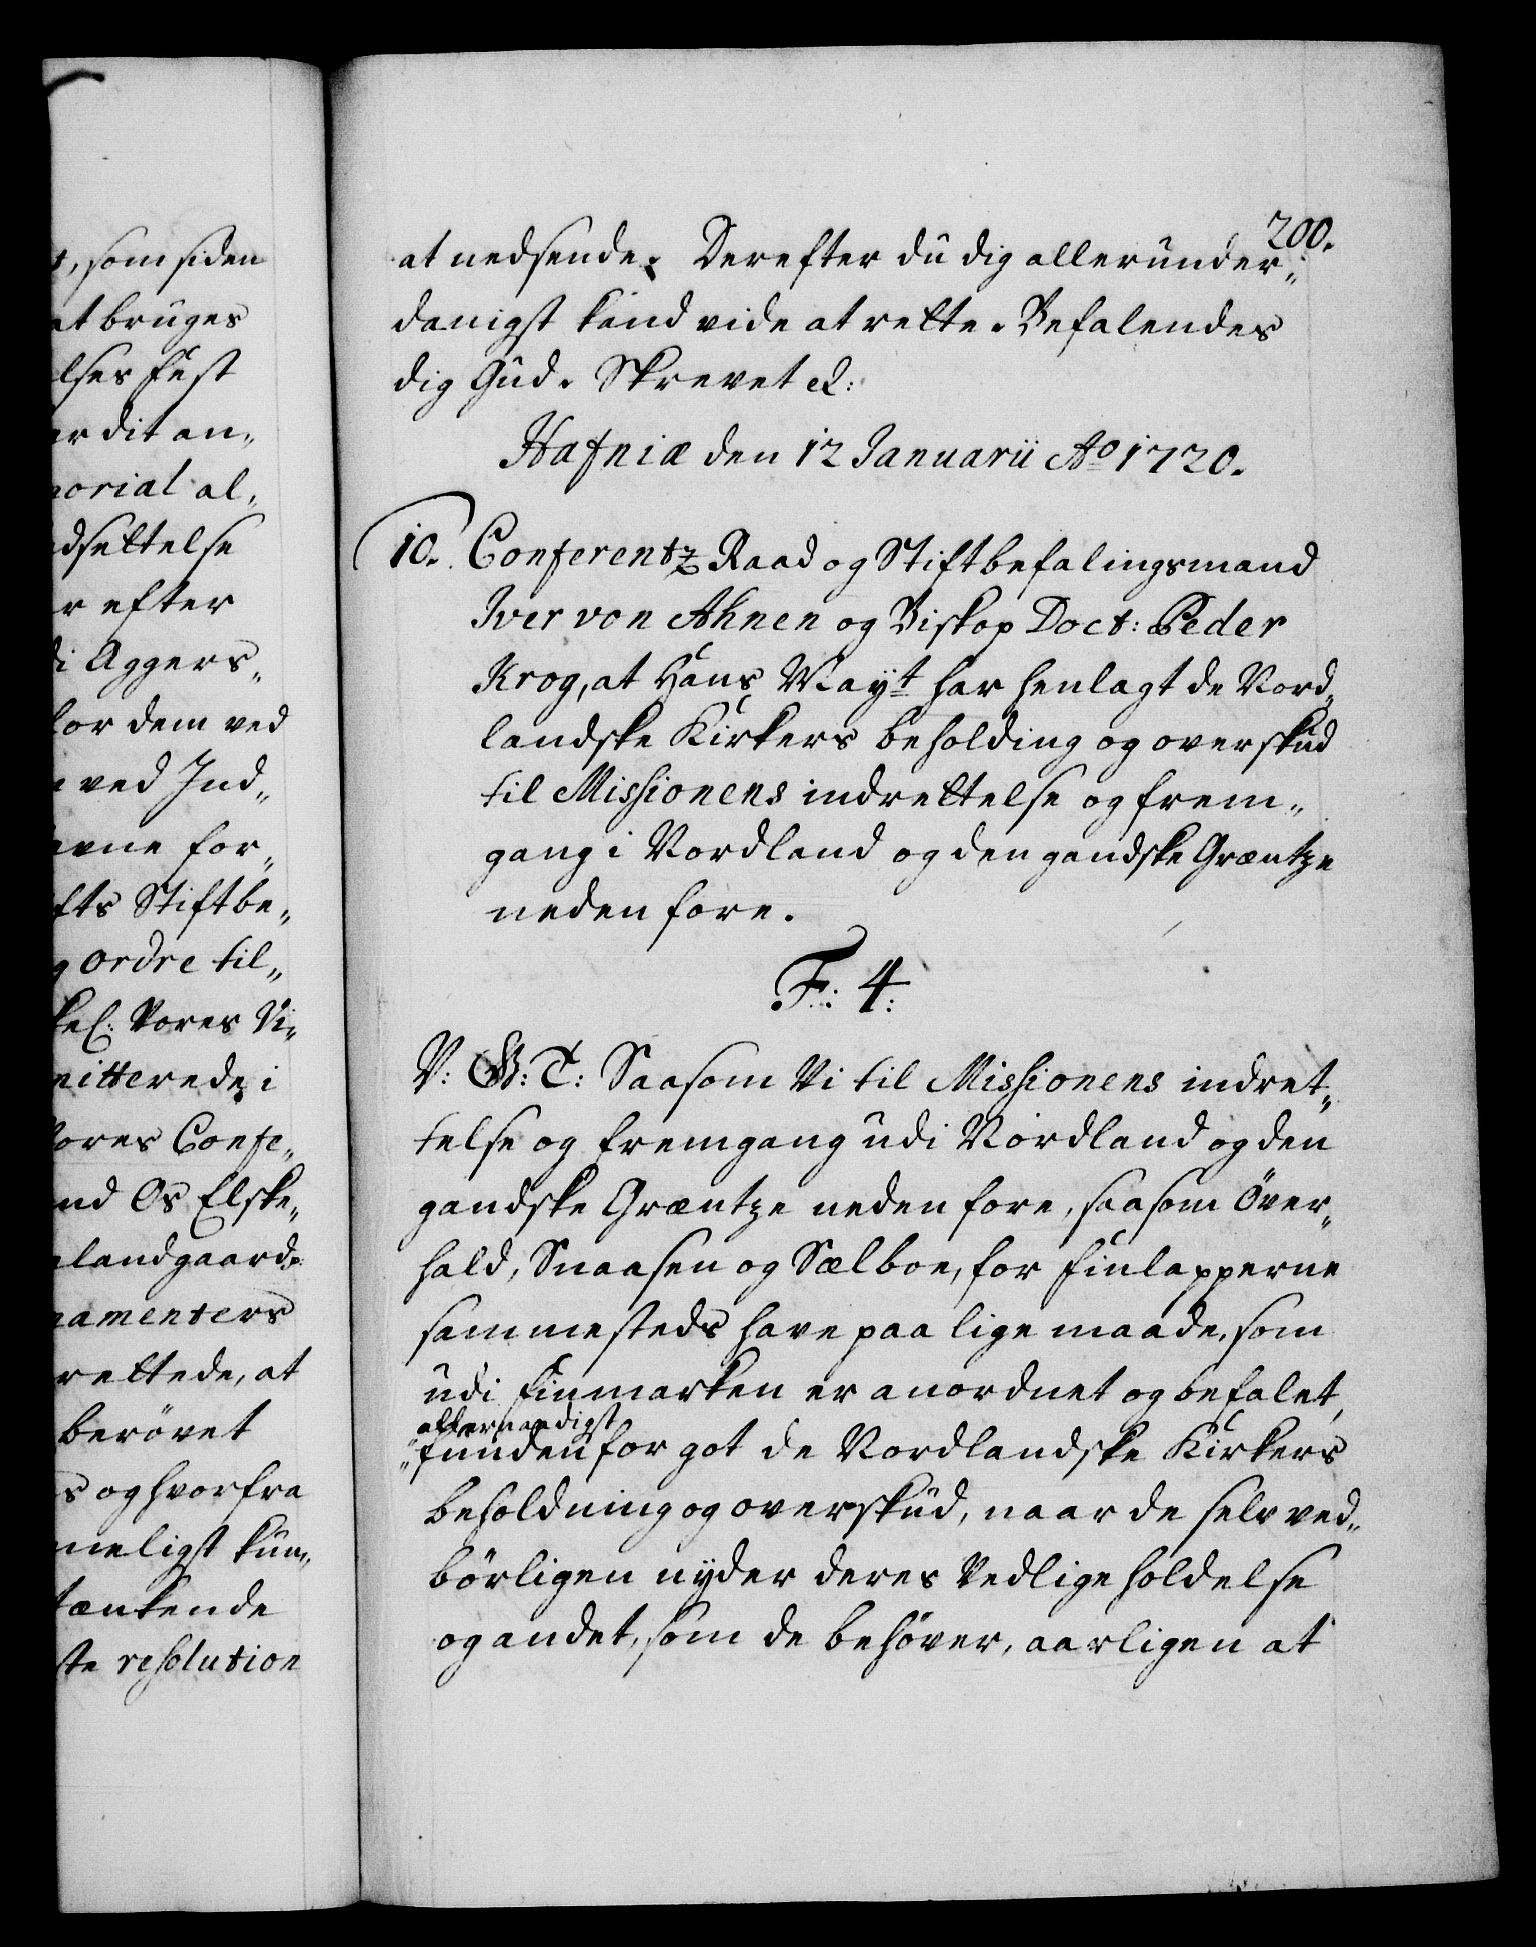 t, som siden
at bruges
elses Fest
er dit an„
morial al„
dsettelse
r efter
di Aggers„
for dem ved
ved Ind„
evne for„
fts Stiftbe„
g ordre til„
kel: Vores Vi„
mitterede i
Vores Confe„
nd Os Elske„
landgaard:
namenters
rettede, at
berövet
s og hvorfra
meligst kun„
tænkende
ste resolution
200.
at nedsende. Derefter du dig allerunder„
danigst kand vide at rette. Befalendes
dig Gud. Skrevet &:
Hafniæ den 12 Januarii Ao 1720.
10. Conferentz Raad og Stiftbefalingsmand
Iver von Ahnen og Biskop Doct: Peder
Krog, at Hans Mayt har henlagt de Nord„
landske Kirkers beholding og overskud
til Missionens indrettelse og frem„
gang i Nordland og den gandske Græntze
neden fore.
F: 4:
V: G: T: Saasom Vi til Missionens indret„
telse og fremgang udi Nordland og den
gandske Græntze neden fore, saasom Över„
hald, Snaasen og Sælboe, for Finlapperne
sammesteds have paa lige maade, som
udi Finmarken er anordnet og befalet,
allernaadigst
„funden for got de Nordlandske Kirkers
beholdning og overskud, naar de selv ved„
börligen nyder deres Vedligeholdelse
og andet, som de behöver, aarligen at